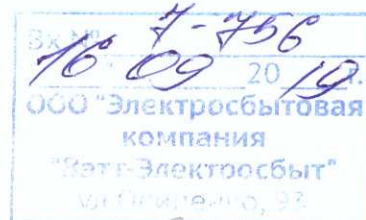 Вх № 7-756
16 09 20 19 г.
ООО "Электросбытовая
компания
"Ватт-Электросбыт"
ул Осипенко, 93